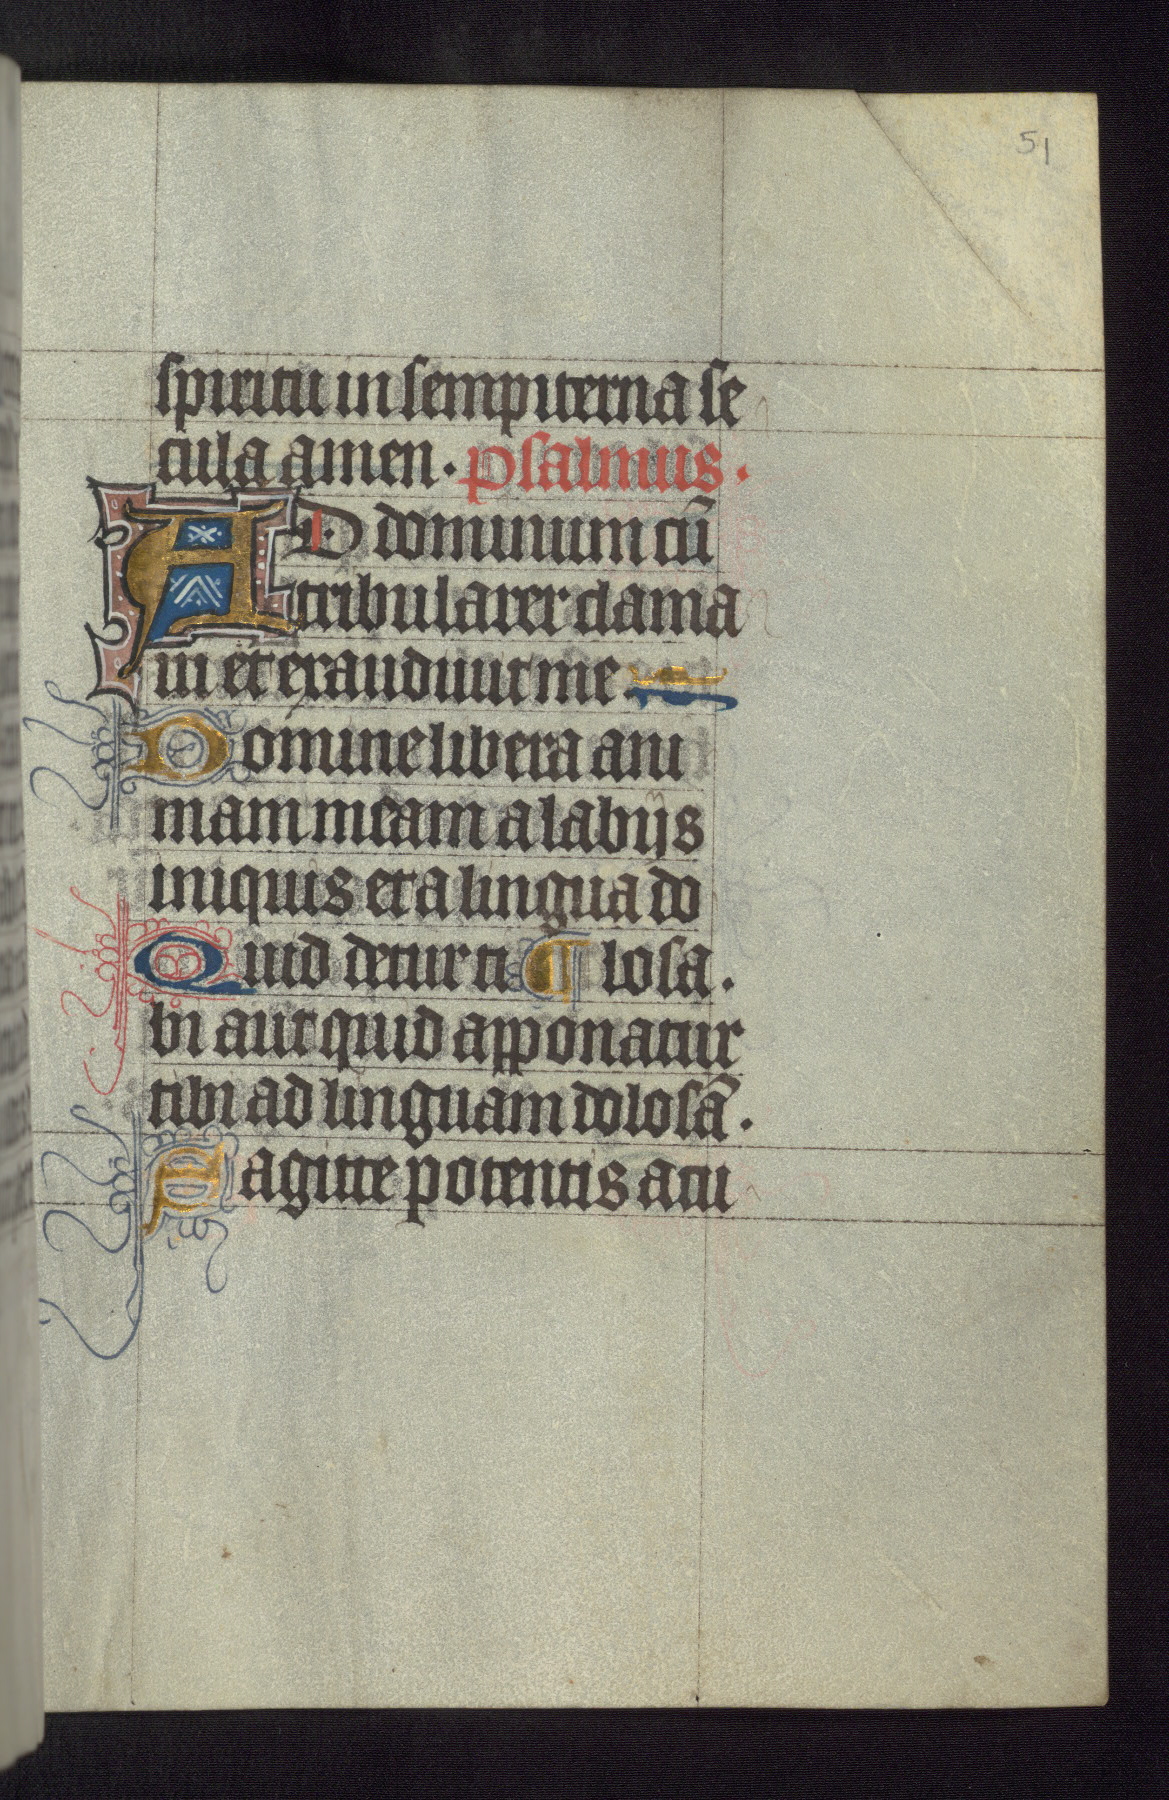 51
spiritu in sempiterna se
cula amen. psalmus.
AD dominum cū
tribularer clama
ui et exaudiuit me.
Domine libera ani
mam meam a labijs
iniquis et a lingua do
Quid detur ti ¶ losa.
bi aut quid apponatur
tibi ad linguam dolosā.
Sagitte potentis acu